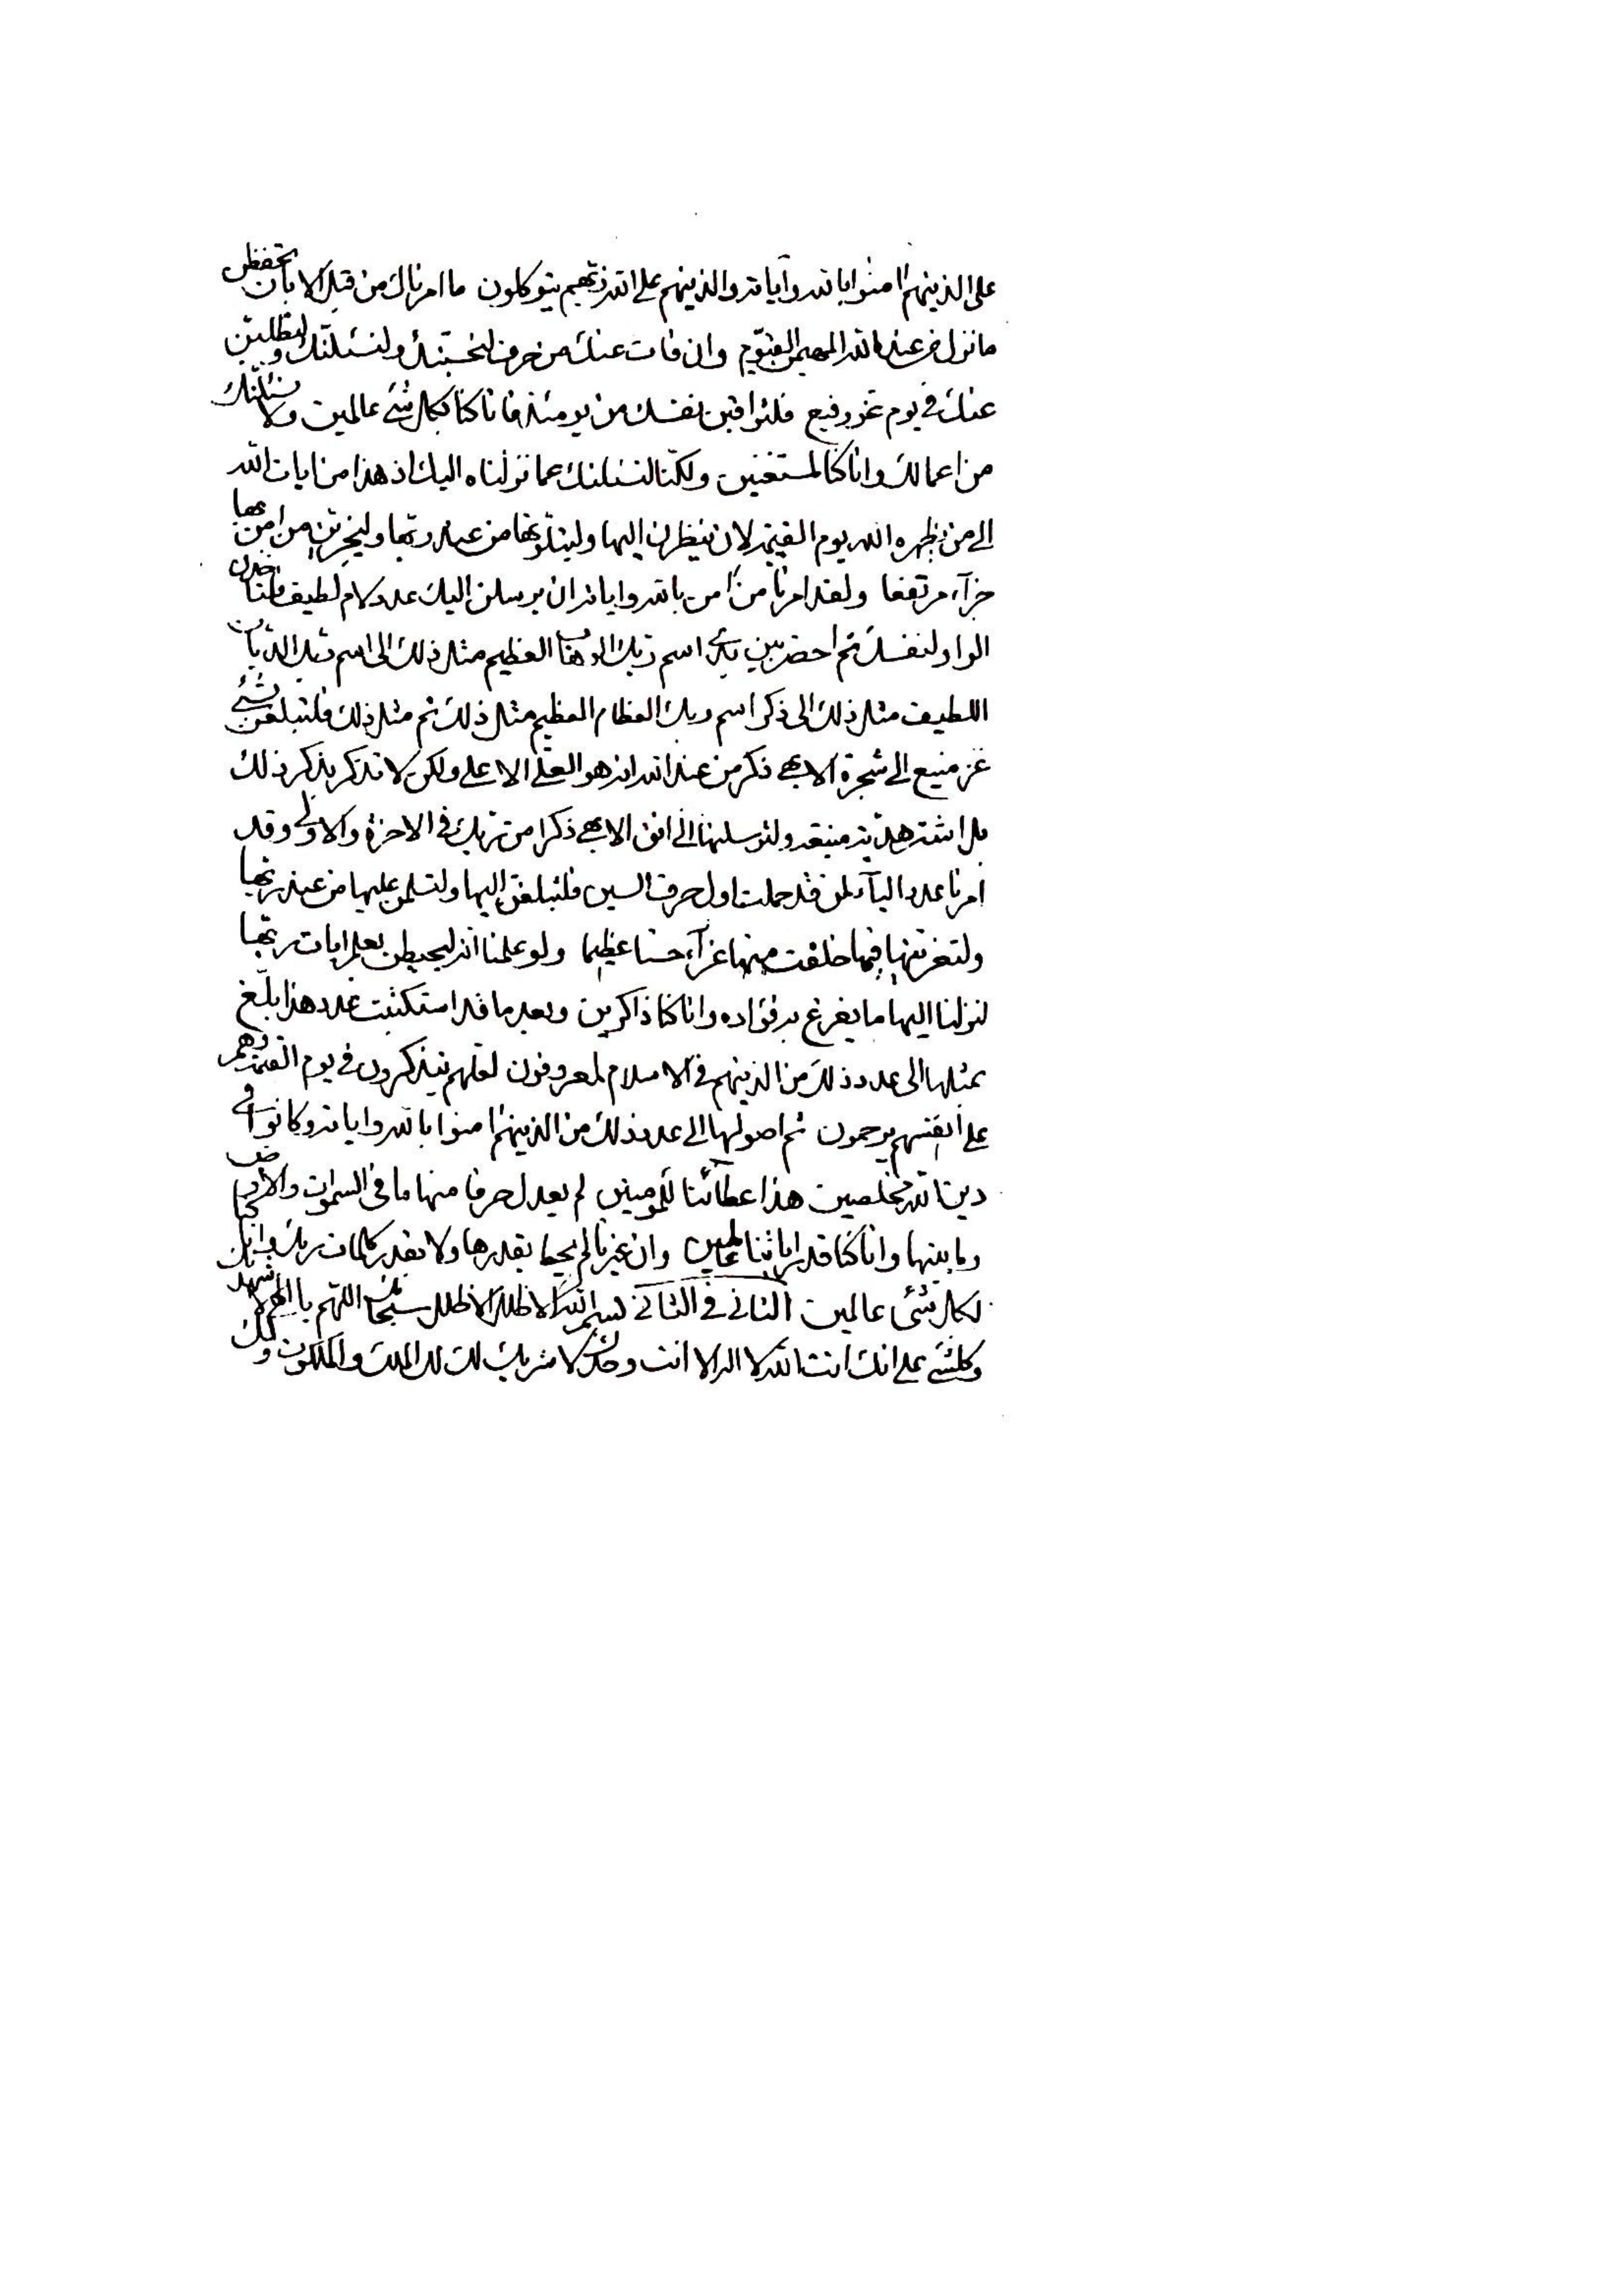 على الذينهم امنوا بالله وآياته والذينهم على الله ربهم يتوكلون ما امرناك من قبل الا بان تحفظن
ما نزل من عند الله المهيمن القيوم وان فات عنك من حرف لنحسبنك ولنسئلنك ولنطلبن
عنك في يوم عز رفيع فلتراقبن نفسك من يومئذ فانا كنا بكلشئ عالمين ولا نسئلنك
من اعمالك وانا كنا لمستغنين ولكنا لنسئلنك عما نزلناه اليك اذ هذا من ايات الله
الى من يظهره الله يوم القيمة لان ينظرن اليها وليتلونها من عند ربها وليجزين من امن بها
جزآء مرتفعا ولقد امرنا من امن بالله واياته ان يرسلن اليك عدد لام لطيف فلتاخذن
الواو لنفسك ثم احضر بين يدى اسم ربك الوهاب العظيم مثل ذلك الى اسم ربك الديان
اللطيف مثل ذلك الى ذكر اسم ربك العظام العظيم مثل ذلك ثم مثل ذلك فلتبلغن شئ
عز منيع الى شجرة الابهى ذكر من عند الله انه هو العلي الاعلى ولكن لا تذكر بذكر ذلك
بل اشتر هدية منيعة ولترسلنها الى افق الابهى ذكرا من ربك في الاخرة والاولى وقد
امرنا عدد البآء لمن قد حملت اول حرف السين فلتبلغن اليها ولتسلمن عليها من عند ربها
ولتعزينها فيما خلقت منها عزآء حسنا عظيما ولو علمنا انه ليحيطن بعلم ايات ربها
لنزلنا اليها ما يفرغ به فؤاده وانا كنا ذاكرين وبعد ما قد استكتبت عدد هذا بلغ
بمثلها الى عدد ذلك من الذينهم في الاسلام لمعروفون لعلهم يتذكرون في يوم القيمة وهم
على انفسهم يرحمون ثم اصولها الى عدد ذلك من الذينهم امنوا بالله واياته وكانوا في
دين الله مخلصين هذا عطائنا للمومنين لم يعدل حرفا منها ما في السموات والارض
وما بينها وانا كنا قدر اياتنا عالمين وان غيرنا لم يحط بقدرها ولا بقدر كلمات ربك وانا كنا
لكل شئ عالمين الثاني في الثاني بسم الله الاظلل الاظلل سبحانك اللهم يا الهي لاشهدنك
وكلشئ على انك انت الله لا اله الا انت وحدك لا شريك لك لك الملك والملكوت ولك